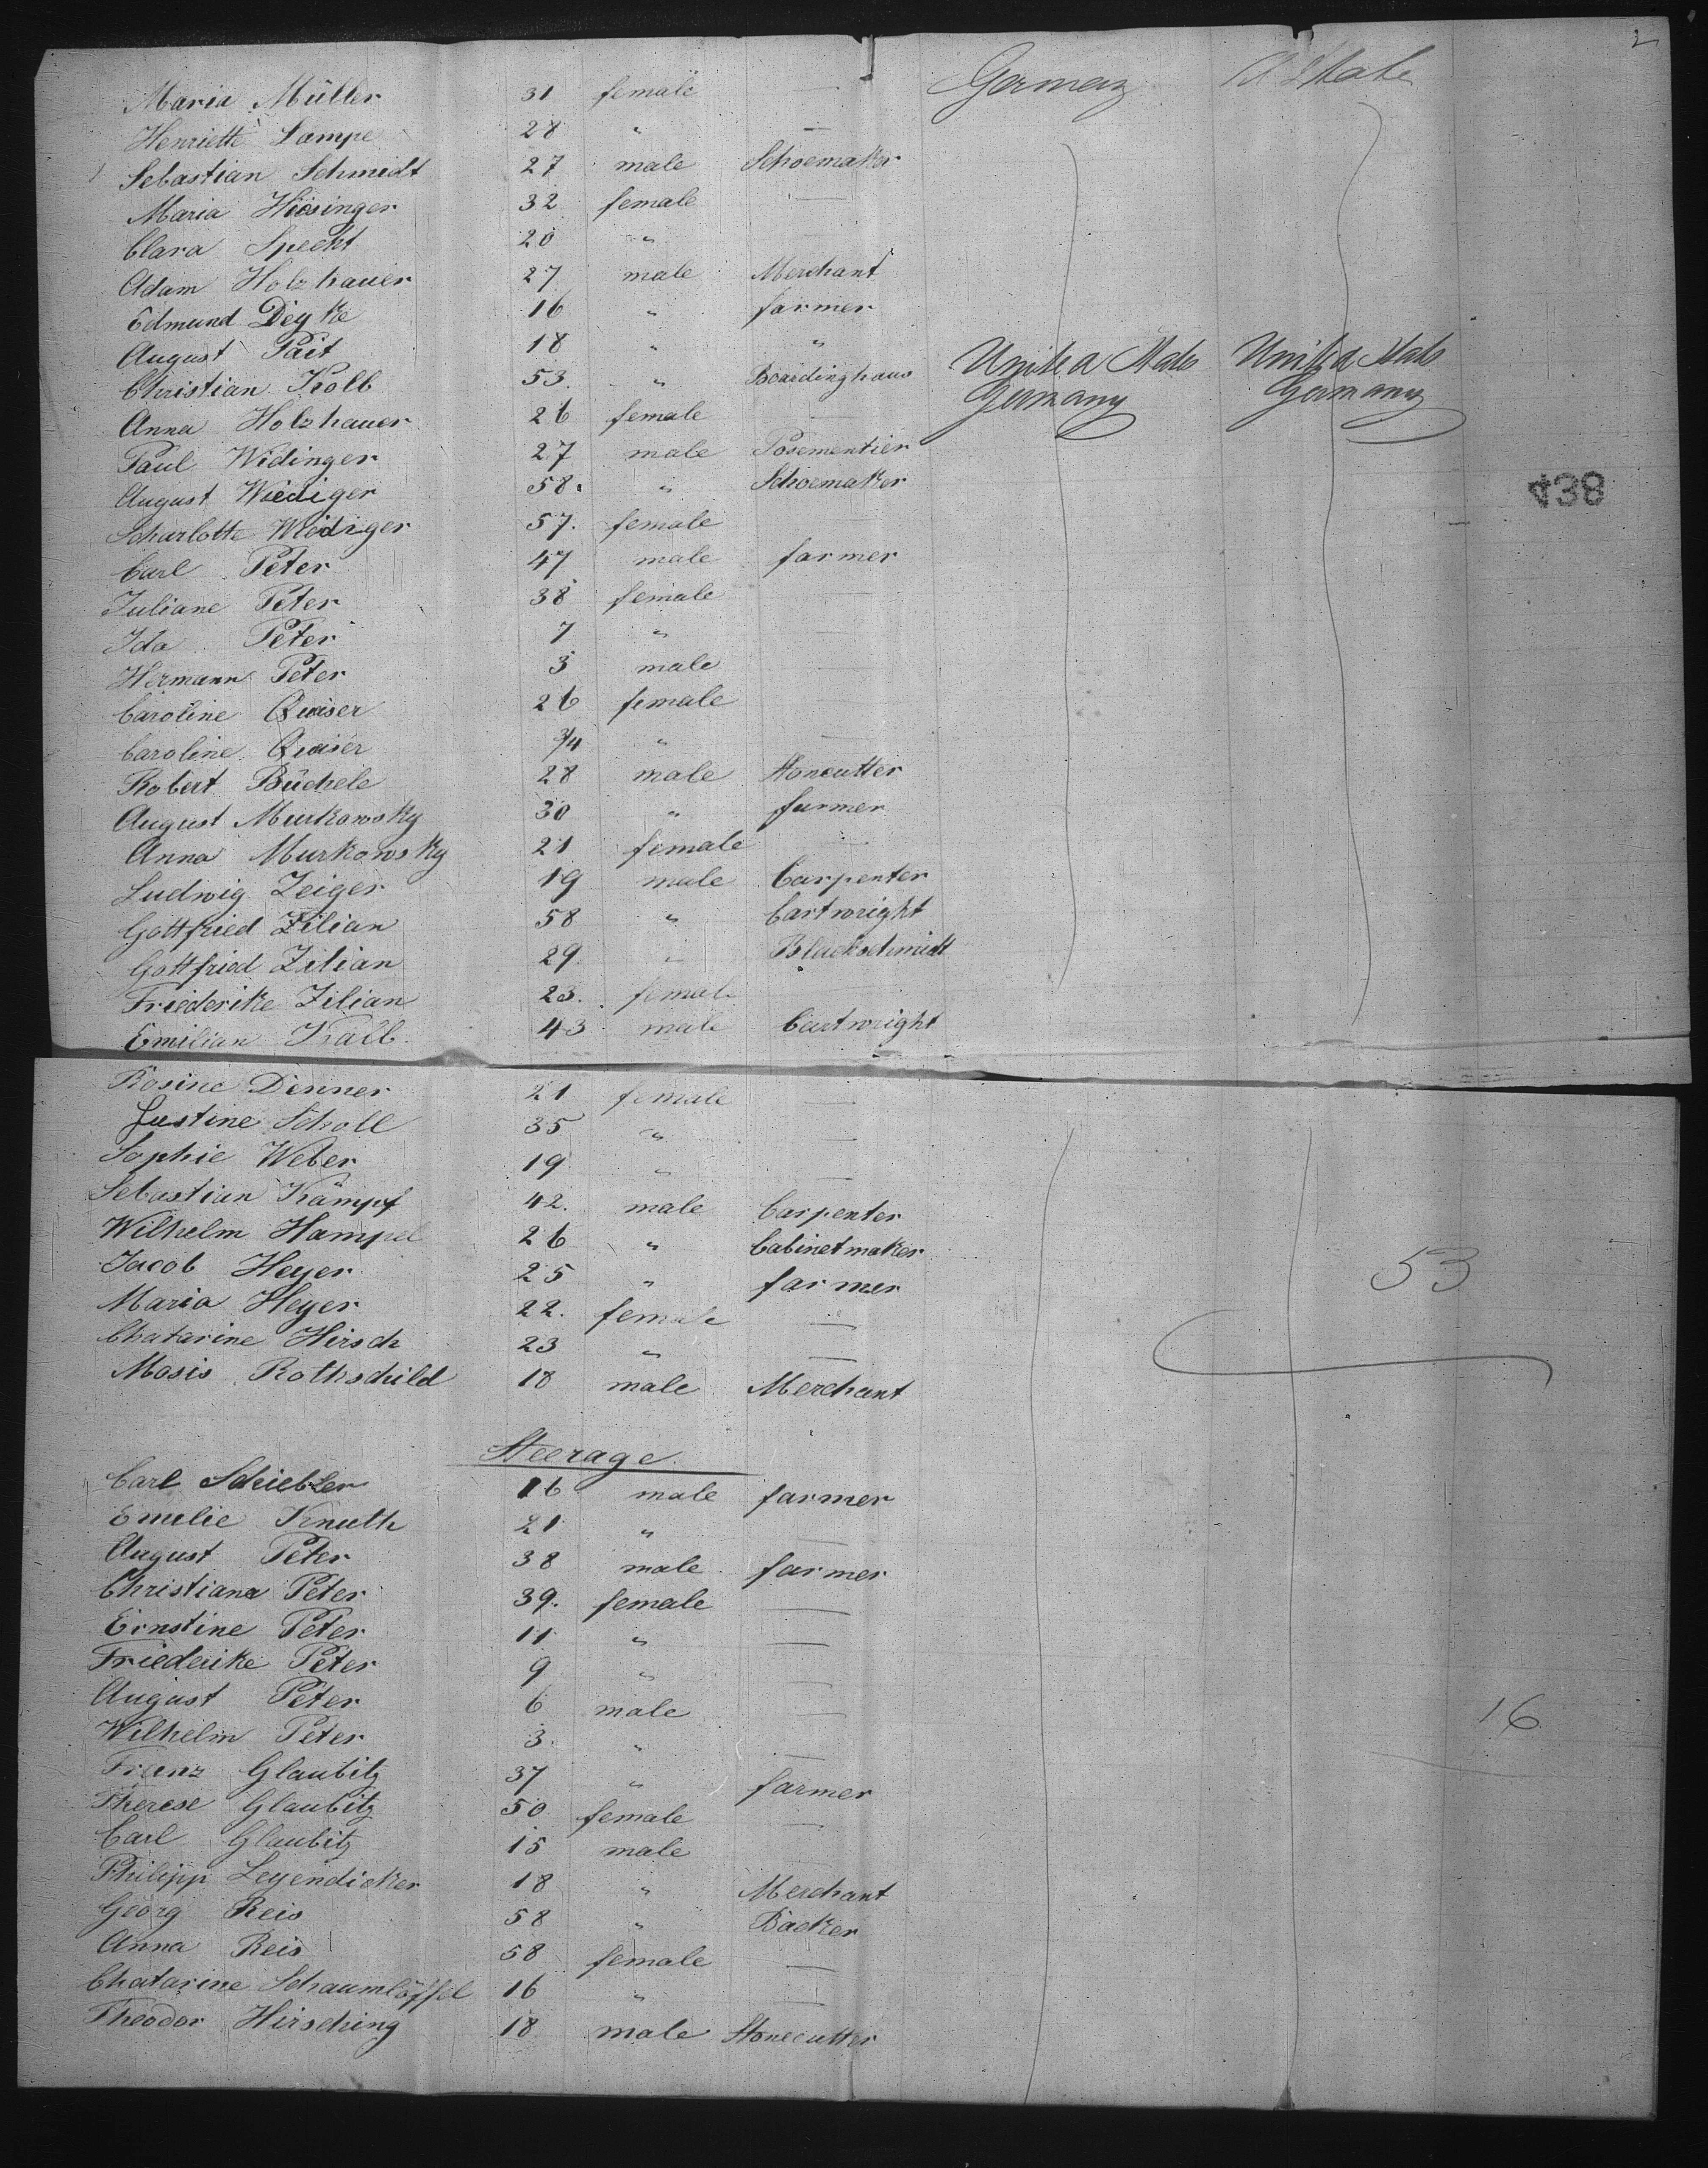 2
Maria Müller 31 female — Germany U State
Henriette Lampe 28 " —
Sebastian Schmidt 27 male Schoemaker
Maria Hiesinger 32 female —
Clara Specht 20 "
Adam Holzhauer 27 male Merchant
Edmund Deyke 16 " farmer
August Pait 18 " "
Christian Kolb 53. " Boardinghaus United States United States
Anna Holzhauer 26 female — Germany Germany
Paul Widinger 27 male Posementier
August Wiediger 58. " Schoemaker
438
Scharlotte Wiediger 57. female —
Carl Peter 47 male farmer
Juliane Peter 38 female —
Ida Peter 7 " —
Hermann Peter 3 male —
Caroline Quaiser 26 female —
Caroline Quaiser 3/4 " —
Robert Büchele 28 male Stonecutter
August Murkowsky 30 " farmer
Anna Murkowsky 21 female —
Ludwig Zeiger 19 male Carpenter
Gottfried Zilian 58 " Cartwright
Gottfried Zilian 29. " Blackschmidt
Friederike Zilian 23. female
Emilian Kalb 43 male Cartwright
Rosine Denner 21 female —
Justine Scholl 35 " —
Sophie Weber 19 " —
Sebastian Kämpf 42. male Carpenter
Wilhelm Hampel 26 " Cabinetmaker
53
Jacob Heyer 25 " farmer
Maria Heyer 22. female —
Chatarine Hirsch 23 " —
Mosis Rothschild 18 male Merchant
Steerage.
Carl Schiebler 16 male farmer
Emilie Knuth 21 " —
August Peter 38 male farmer
Christiana Peter 39. female —
Ernstine Peter 11 " —
Friederike Peter 9 " —
August Peter 6 male —
16
Wilhelm Peter 3. " —
Franz Glaubitz 37 " farmer
Therese Glaubitz 50 female —
Carl Glaubitz 15 male
Philipp Leyendicker 18 " Merchant
Georg Reis 58 " Backer
Anna Reis 58 female —
Chatarine Schaumlöffel 16 " —
Theodor Hirsching 18 male Stonecutter